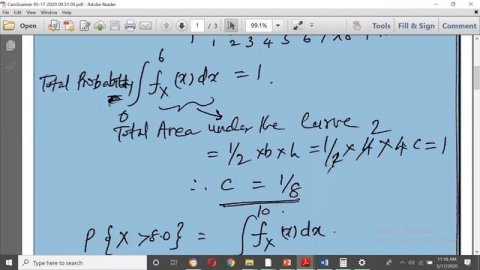 CamScanner 05-17-2020 09.51.05.pdf - Adobe Reader
File Edit View Window Help
Open
1 / 3
99.1%
Tools Fill & Sign Comment
1 2 3 4 5 6 7 8
6
Total Probability ∫ f_X (x) dx = 1.
0
Total Area under the Curve
2
= 1/2 × b × h = 1/2 × 4 × 4 c = 1
∴ c = 1/8
10
P { X > 8.0 } = ∫ f_X (x) dx.
Type here to search
11:18 AM
5/17/2020